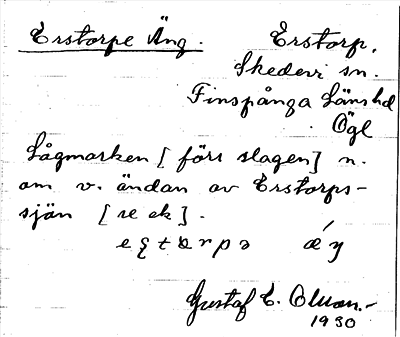 Erstorpe Äng.
Erstorp,
Skedevi sn.
Finspånga Länshd
Ögl
Lågmarken [förr slagen] n.
om v. ändan av Erstorps-
sjön [se ek].
Gustaf E. Olson.-
1930